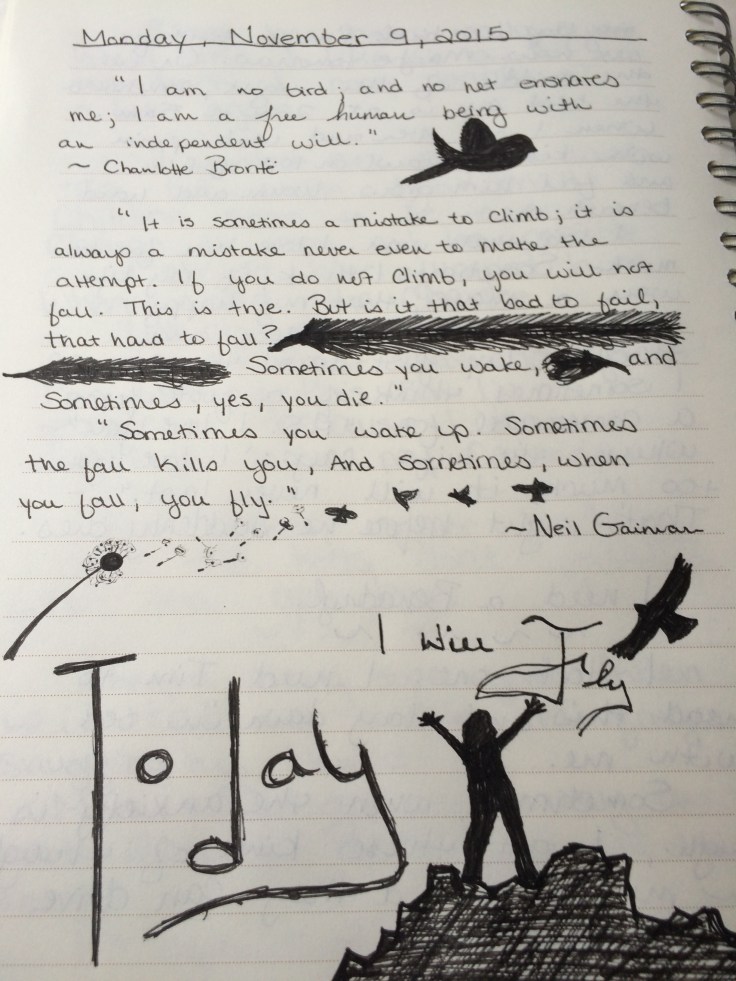 Monday, November 9, 2015
"I am no bird; and no net ensnares
me; I am a free human being with
an independent will."
~ Charlotte Brontë
"It is sometimes a mistake to climb; it is
always a mistake never even to make the
attempt. If you do not climb, you will not
fall. This is true. But is it that bad to fail,
that hard to fall?
Sometimes you wake, and
Sometimes, yes, you die."
"Sometimes you wake up. Sometimes
the fall kills you, And sometimes, when
you fall, you fly."
~Neil Gaiman
I will Fly
Today